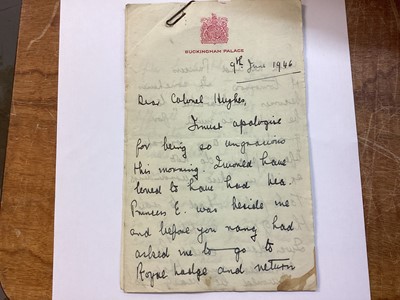 BUCKINGHAM PALACE
9th June 1946
Dear Colonel Hughes,
I must apologise
for being so ungracious
this morning. I would have
loved to have had tea.
Princess E. was beside me
and before you rang had
asked me to go to
Royal Lodge and return